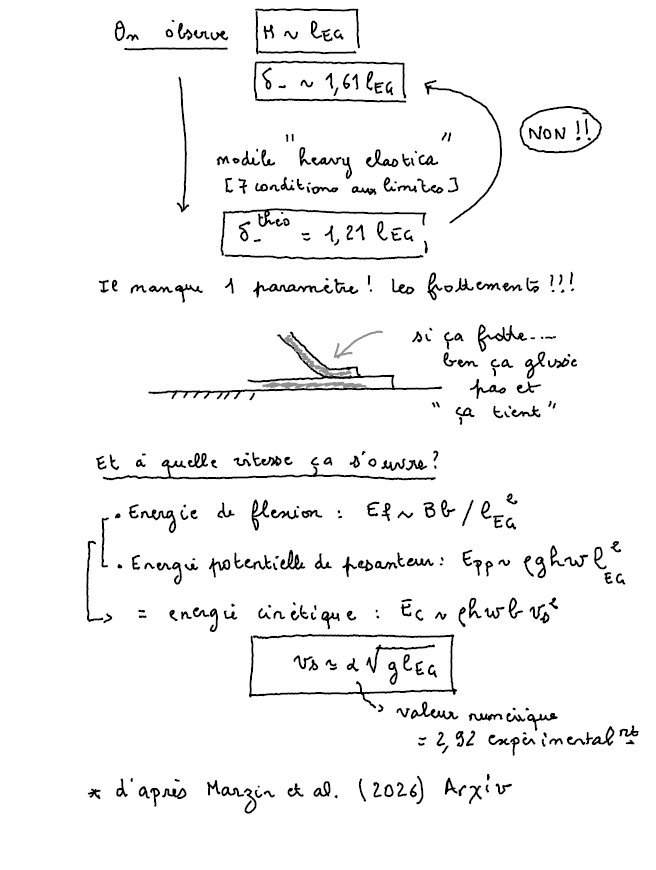 On observe H ~ lEG
δ- ~ 1,61 lEG
NON !!
modèle "heavy elastica"
[7 conditions aux limites]
δ-théo = 1,21 lEG
Il manque 1 paramètre ! Les frottements !!!
si ça frotte....
ben ça glisse
pas et
"ça tient"
Et à quelle vitesse ça s'ouvre?
• Energie de flexion : Ef ~ Bb / lEG²
• Energie potentielle de pesanteur : Epp ~ ρghw lEG²
= energie cinétique : Ec ~ ρhwb vs²
vs ≈ α √glEG
valeur numérique
= 2,92 expérimental nt
* d'après Marzin et al. (2026) Arxiv